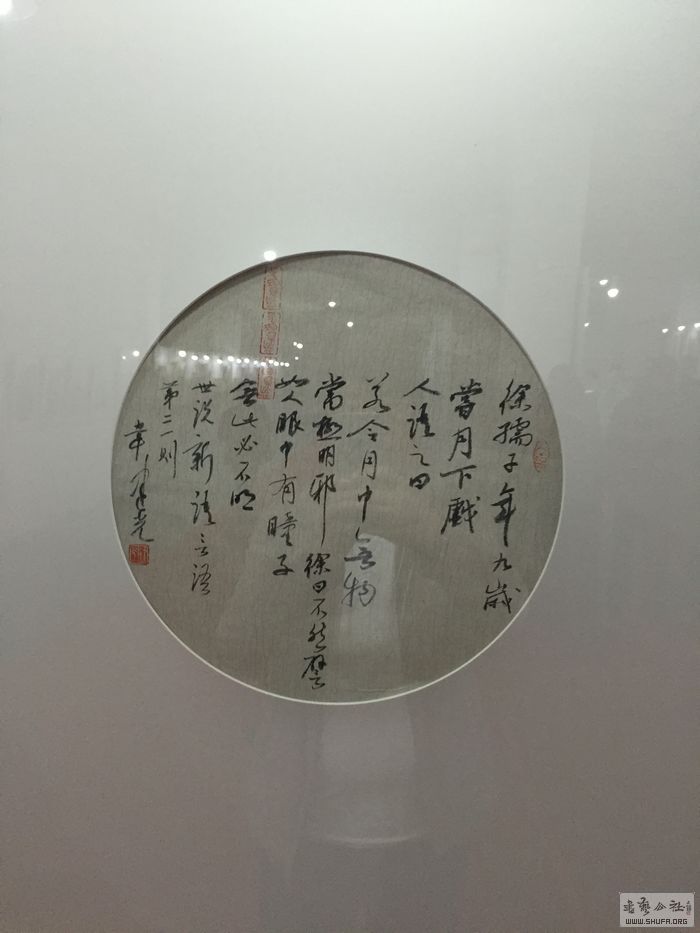 徐孺子年九歲
嘗月下戲
人語之曰
若令月中無物
當極明邪徐曰不然譬
如人眼中有瞳子
無此必不明
世说新語言語
第二则
書藝公社
WWW.SHUFA.ORG